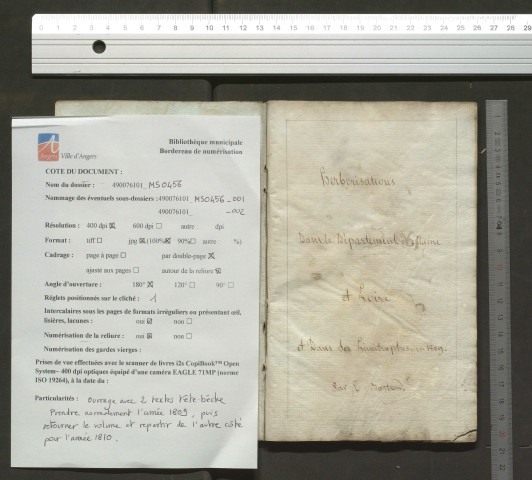 Ville d'Angers
Bibliothèque municipale
Bordereau de numérisation
COTE DU DOCUMENT :
Nom du dossier : 490076101_ MS0456
Nommage des éventuels sous-dossiers :490076101_ MS0456_001
490076101_ _002
Résolution : 400 dpi ☒ 600 dpi ☐ autre dpi
Format : tiff ☐ jpg ☒ (100%☒ 90%☐ autre %)
Cadrage : page à page ☐ par double-page ☒
ajusté aux pages ☐ autour de la reliure ☒
Angle d'ouverture : 180° ☒ 120° ☐ 90° ☐
Réglets positionnés sur le cliché : 1
Intercalaires sous les pages de formats irréguliers ou présentant œil,
lisières, lacunes : oui ☒ non ☐
Numérisation de la reliure : oui ☒ non ☐
Numérisation des gardes vierges :
Prises de vue effectuées avec le scanner de livres i2s CopiBook™ Open
System– 400 dpi optiques équipé d'une caméra EAGLE 71MP (norme
ISO 19264), à la date du :
Particularités : Ouvrage avec 2 textes tête-bêche
Prendre normalement l'année 1809, puis
retourner le volume et repartir de l'autre côté
pour l'année 1810.
Herborisations
Dans le Département de Maine
et Loire
et Dans des en 1809.
Par